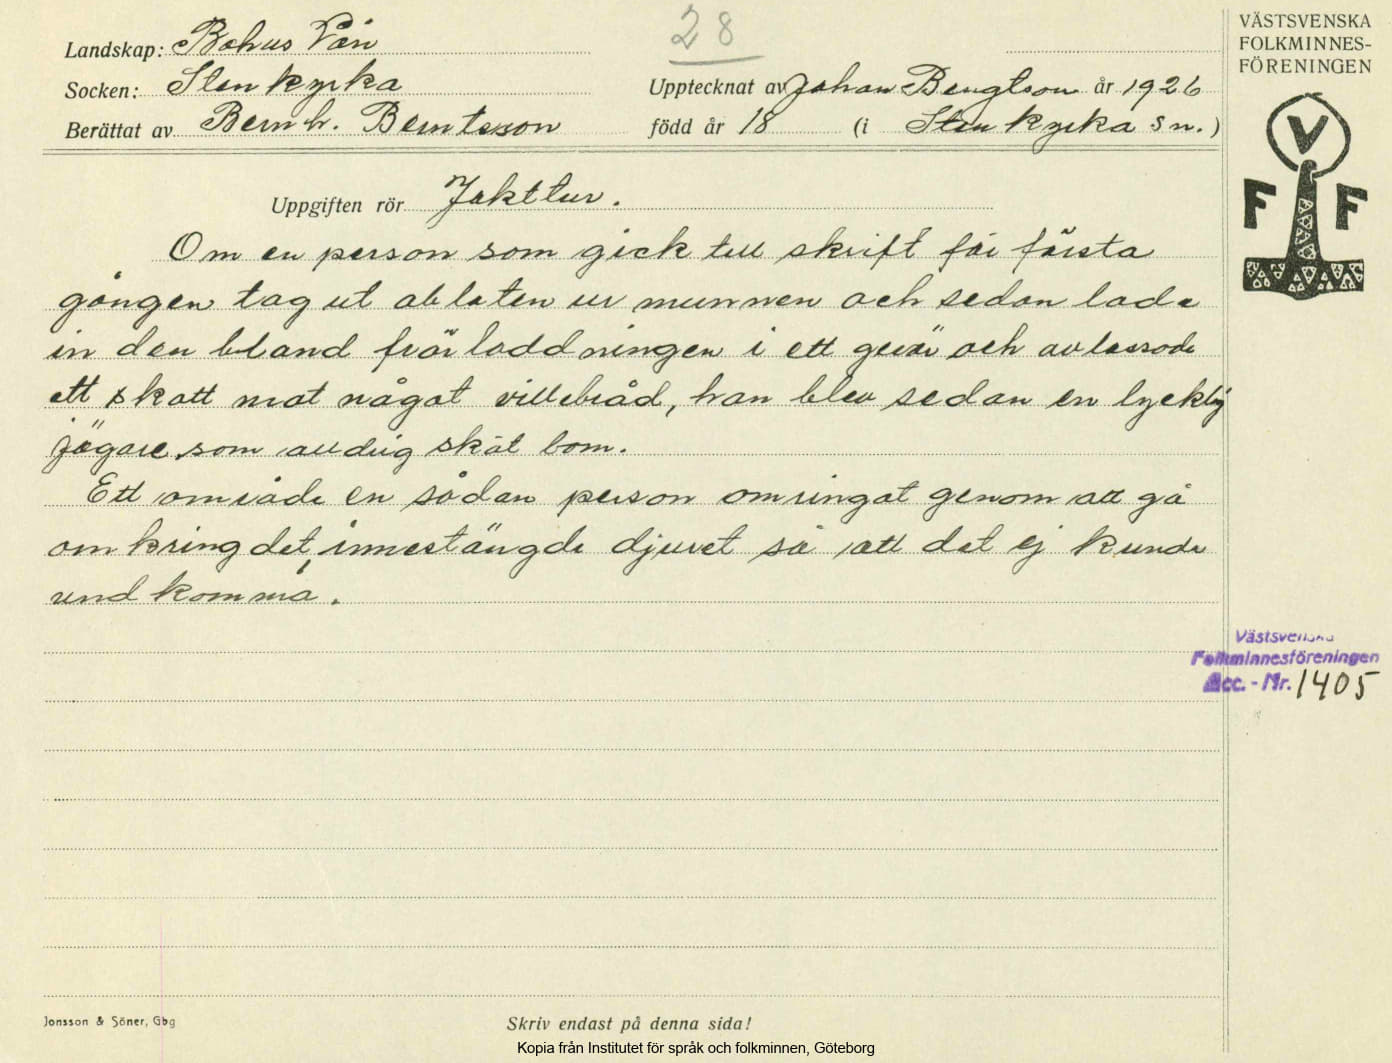 28
Landskap: Bohus Län
Socken: Stenkyrka
Upptecknat av Johan Bengtson år 1926
Berättat av Bernh. Berntsson född år 18 (i Stenkyrka sn.)
VÄSTSVENSKA
FOLKMINNES-
FÖRENINGEN
V
F F
Uppgiften rör Jakttur.
Om en person som gick till skrift för första
gången tog ut oblaten ur munnen och sedan lade
in den bland förladdningen i ett gevär och avlossade
ett skott mot något villebråd, han blev sedan en lycklig
jägare som aldrig sköt bom.
Ett område en sådan person omringat genom att gå
omkring det, innestängde djuret så att det ej kunde
undkomma.
Västsvenska
Folkminnesföreningen
Acc. - Nr. 1405
Jonsson & Söner, Gbg
Skriv endast på denna sida!
Kopia från Institutet för språk och folkminnen, Göteborg